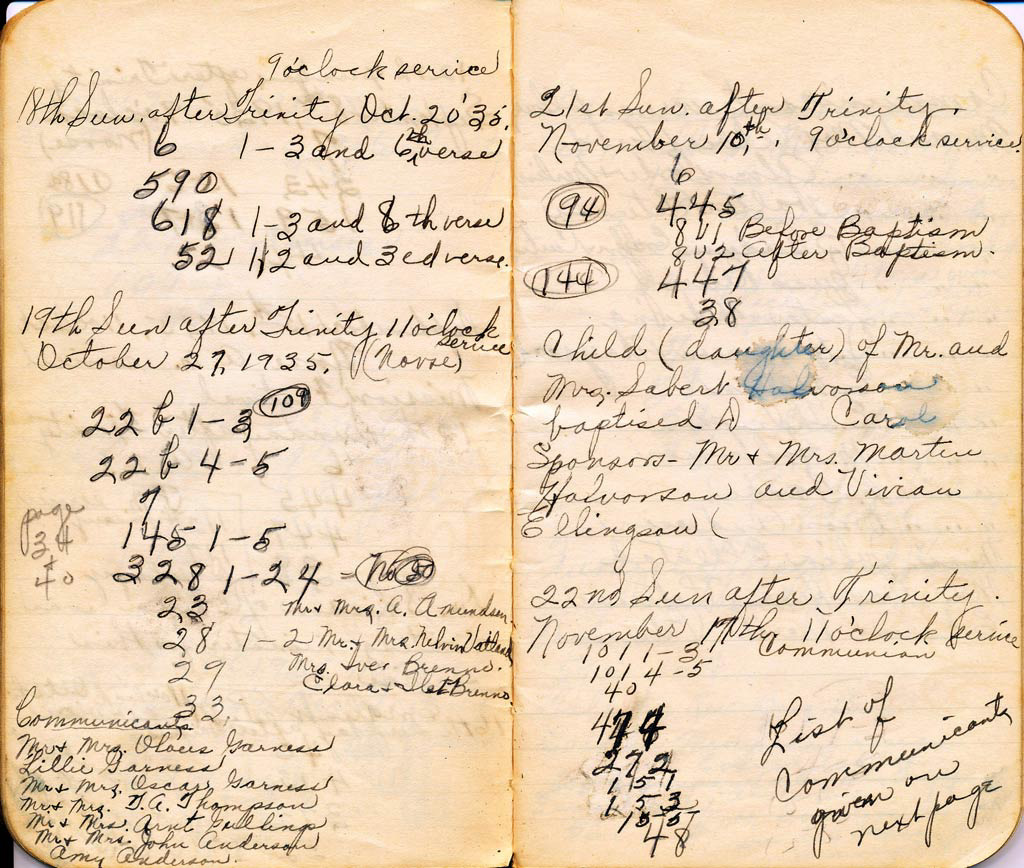 9 o'clock service
18th Sun. after Trinity Oct. 20 '35.
6 1-3 and 6th verse
590
618 1-3 and 8th verse
52 1,2 and 3ed verse.
19th Sun after Trinity 11 o'clock
service
October 27, 1935. (Norse)
22 b 1-3 (109)
22 b 4-5
7
page
34
40
145 1-5
328 1-24 - No 50
23 Mr & Mrs. A. Amundsen
28 1-2 Mr. & Mrs. Melvin
29 Mrs. Iver Brenno.
Clara & Brenno
33.
Communicants
Mr & Mrs. Olaus Garness
Lillie Garness
Mr & Mrs. Oscar Garness
Mr & Mrs. T. A. Thompson
Mr & Mrs. Arnt
Mr & Mrs. John Anderson
Amy Anderson.
21st Sun. after Trinity.
November 10th. 9 o'clock service.
6
(94) 445
8 v 1 Before Baptism
8 v 2 After Baptism.
(144) 447
38
Child (daughter) of Mr. and
Mrs. Sabert Halvorson
baptised Carol
Sponsors - Mr & Mrs. Martin
Halvorson and Vivian
Ellingson (
22nd Sun after Trinity.
November 17th 11 o'clock service
Communion
101 1-3
101 4-5
40
474
272
151
153
155
48
List of
Communicants
given on
next page